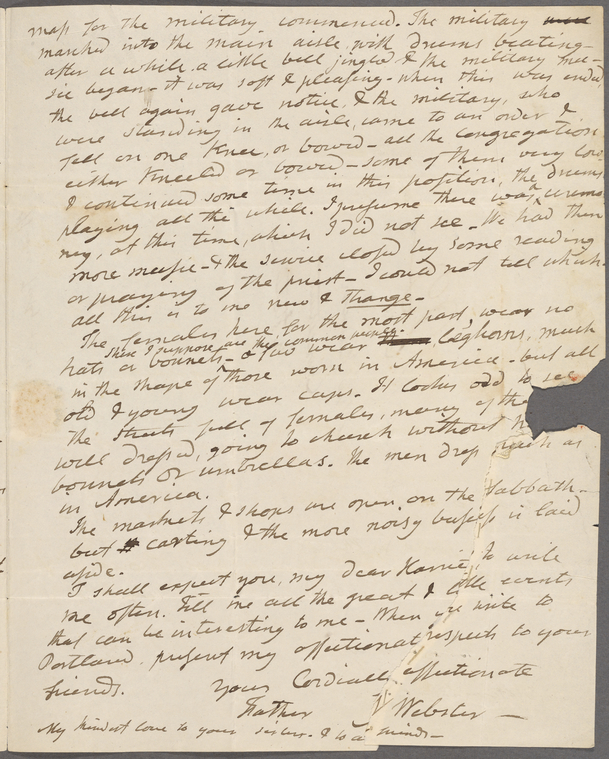 mass for the military commenced. The military
marched into the main aisle with drums beating -
after a while a little bell jingled & the military mu-
sic began - it was soft & pleasing - when this was ended
the bell again gave notice, & the military, who
were standing in the aisle, came to an order &
fell on one Knee, or bowed - all the congregation
either Kneeled or bowed - some of them very low
& continued some time in this position, the drums
playing all the while. I presume there was a ceremo-
ny, at this time, which I did not see - We had then
more music - & the service closed by some reading
or praying of the priest - I could not tell which -
all this is to me new & strange -
The females here for the most part, wear no
these I suppose are the common people.
hats or bonnets - a few wear leghorns, much
in the shape of those worn in America - but all
old & young wear caps. It looks odd to see
the streets full of females, many of the
well dressed, going to church without
bonnets or umbrellas. The men dress much as
in America.
The markets & shops are open on the Sabbath -
but carting & the more noisy business is laid
aside.
I shall expect you, my dear Harriet, to write
me often. Tell me all the great & little events
that can be interesting to me - When you write to
Portland, present my affectionate respects to your
friends.
Your Cordially affectionate
Father N Webster -
My kindest love to your sisters. & to all friends -